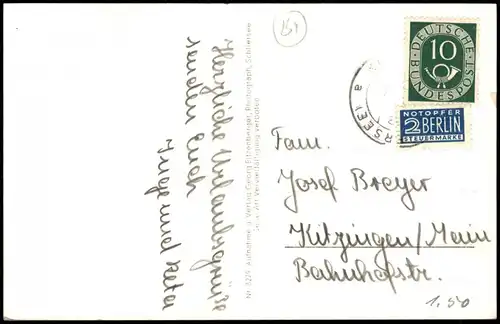 Herzliche Urlaubsgrüße
senden Euch
Inge und Peter
Nr. 3229 Aufnahme u. Verlag Georg Eittenberger, Photograph, Schliersee
Jede Art Vervielfältigung verboten
DEUTSCHE
10
BUNDESPOST
NOTOPFER
2 BERLIN
STEUERMARKE
a
Fam.
Josef Breyer
Kitzingen/Main
Bahnhofstr.
1,50